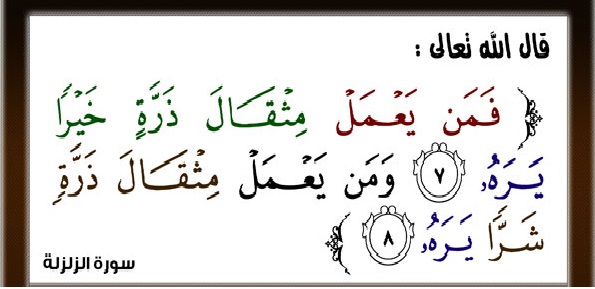 قال الله تعالى :
﴿ فَمَن يَعْمَلْ مِثْقَالَ ذَرَّةٍ خَيْرًا
يَرَهُۥ ٧ وَمَن يَعْمَلْ مِثْقَالَ ذَرَّةٍ
شَرًّا يَرَهُۥ ٨ ﴾
سورة الزلزلة